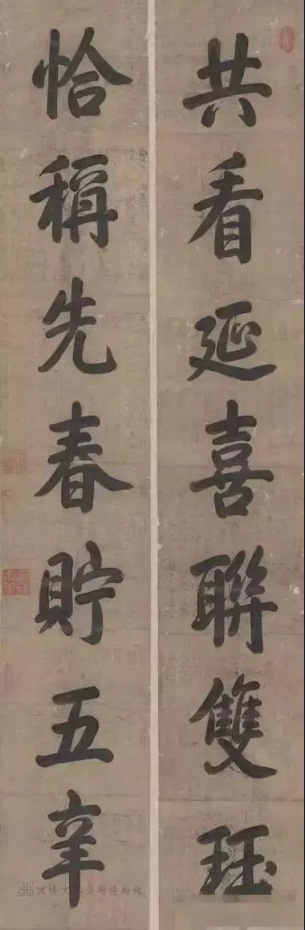 共看延喜聯雙珏
恰稱先春貯五辛